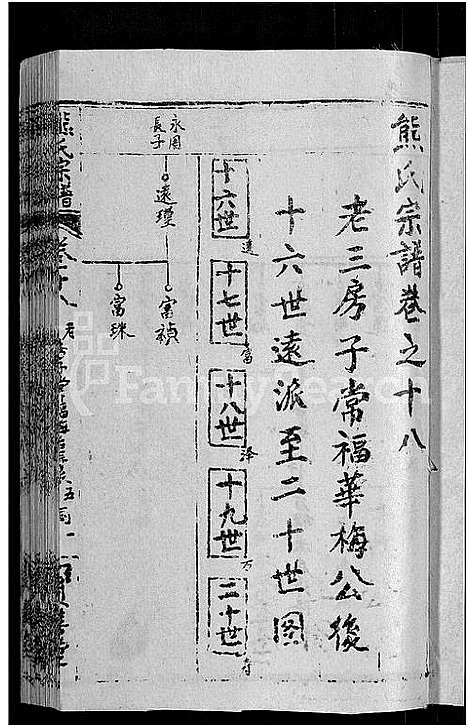 熊氏宗譜卷之十八
老三房子常福華梅公後
十六世遠派至二十世圖
十六世 遠
十七世 富
十八世 泽
十九世 万
二十世
永周長子
遠瓊
富禎
富珠
熊氏宗譜
FamilySearch